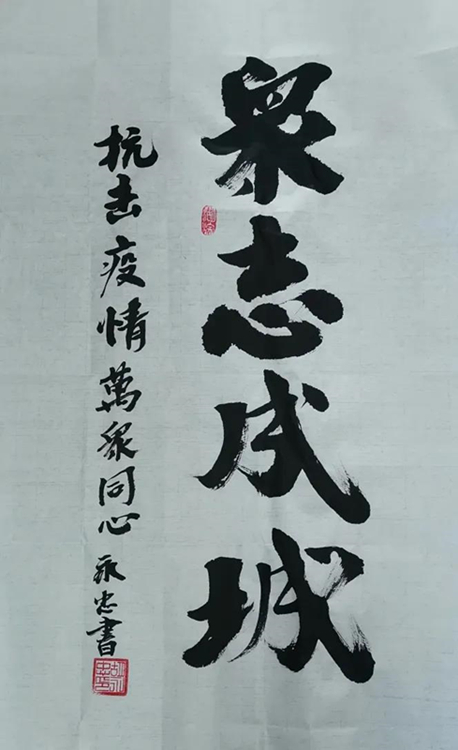 眾志成城
抗击疫情萬眾同心 永忠書